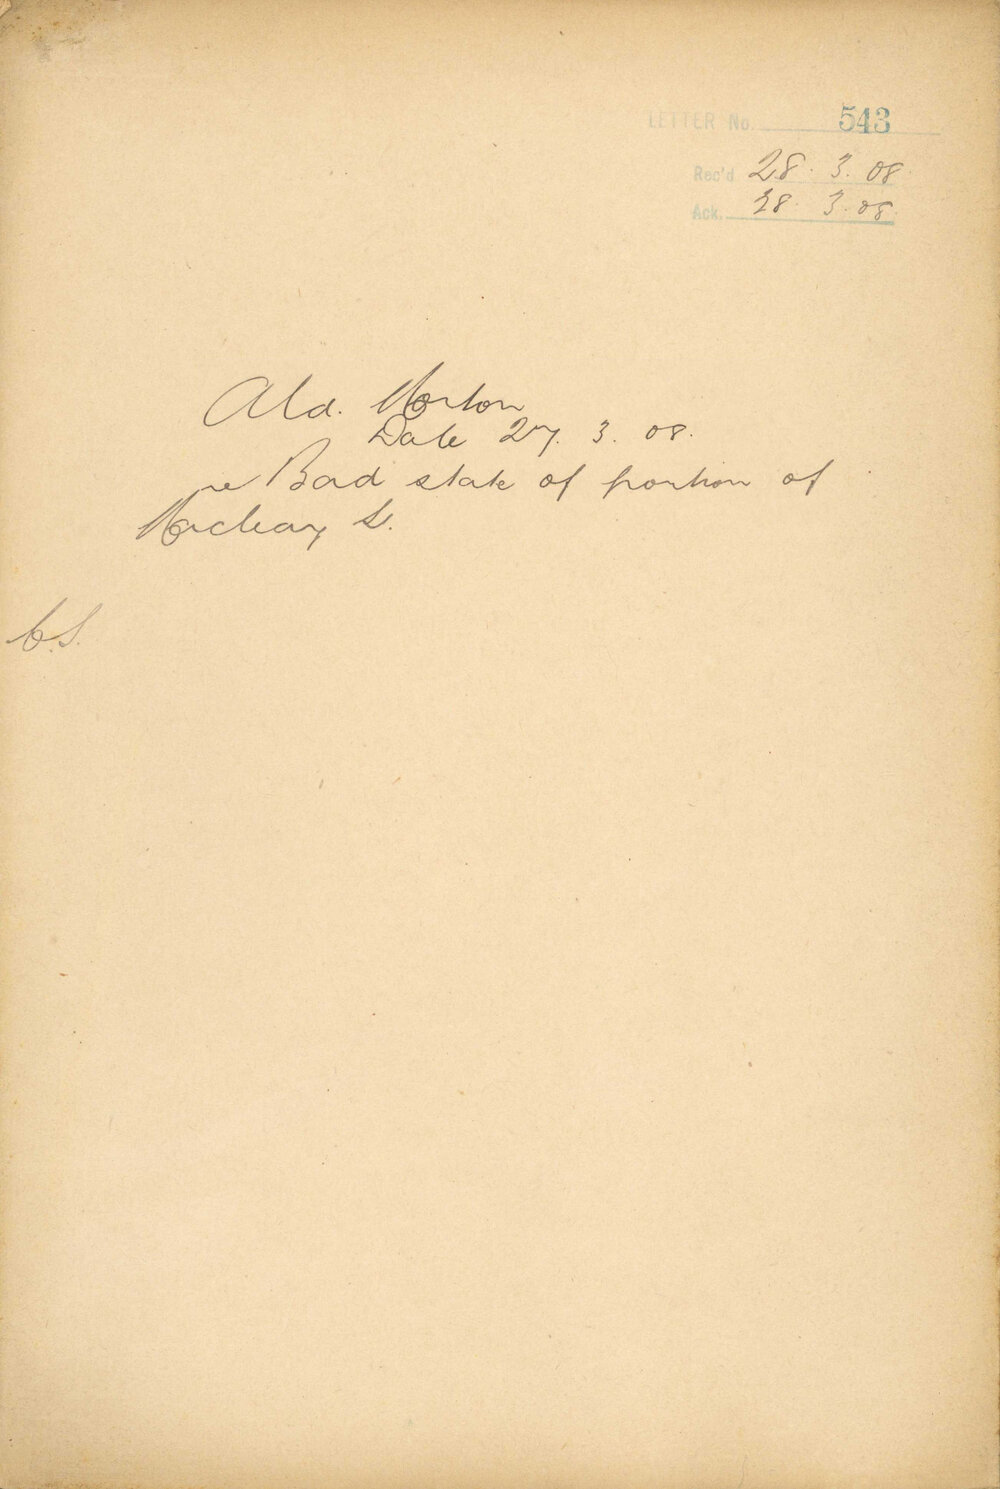 LETTER No. 543
Rec'd 28. 3. 08.
Ack. 28. 3. 08.
Ald.
Date 27. 3. 08.
re Bad state of portion of
Macleay St.
C.S.